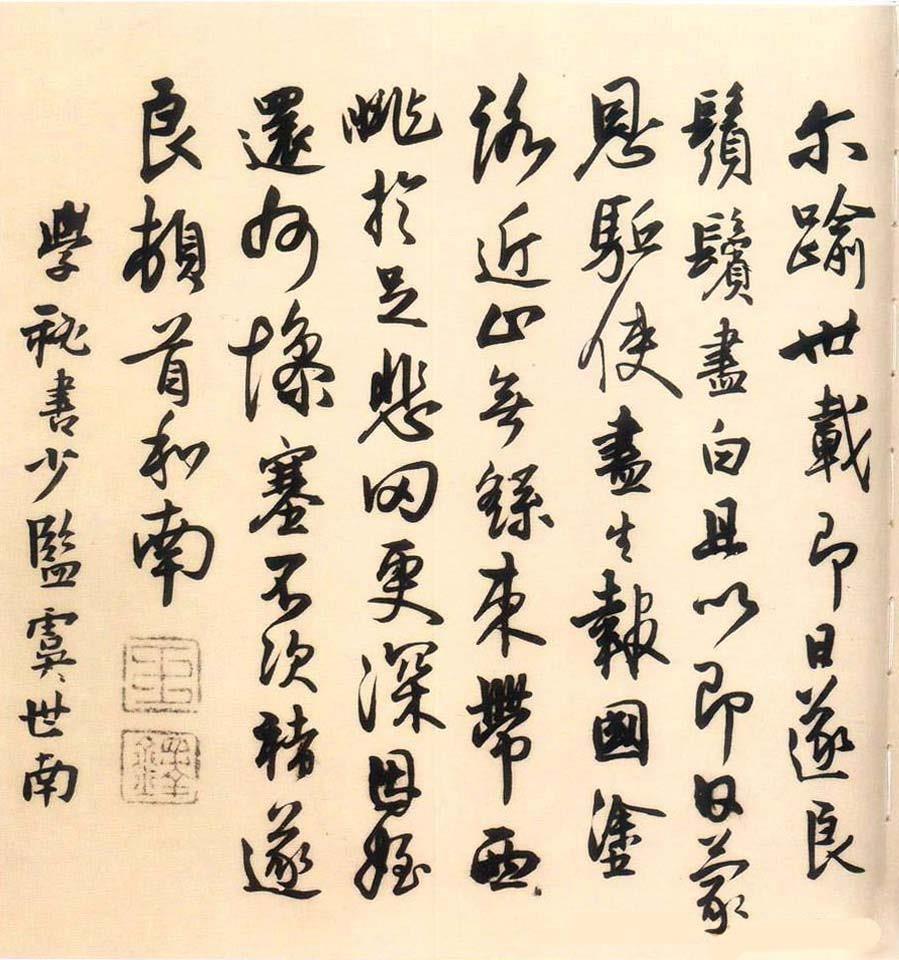 尓踰世載即日遂良
鬚鬢盡白且以即日蒙
恩驅使盡生報國塗
路近止無繇束帶西
眺於足悲罔更深因姪
還州慘塞不次褚遂
良頓首和南
王
鐸
學秘書少監虞世南